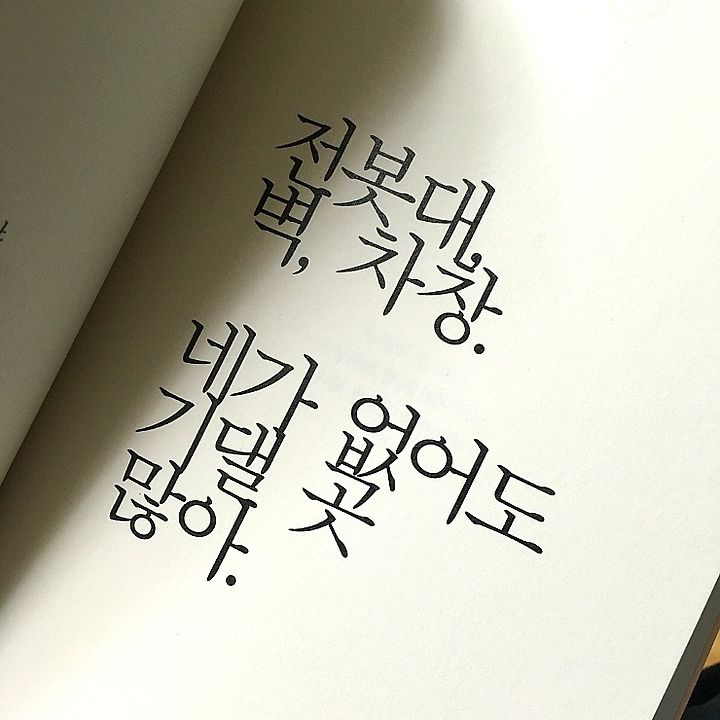 전봇대,
벽, 차창.
네가 없어도
기댈 곳
많아.